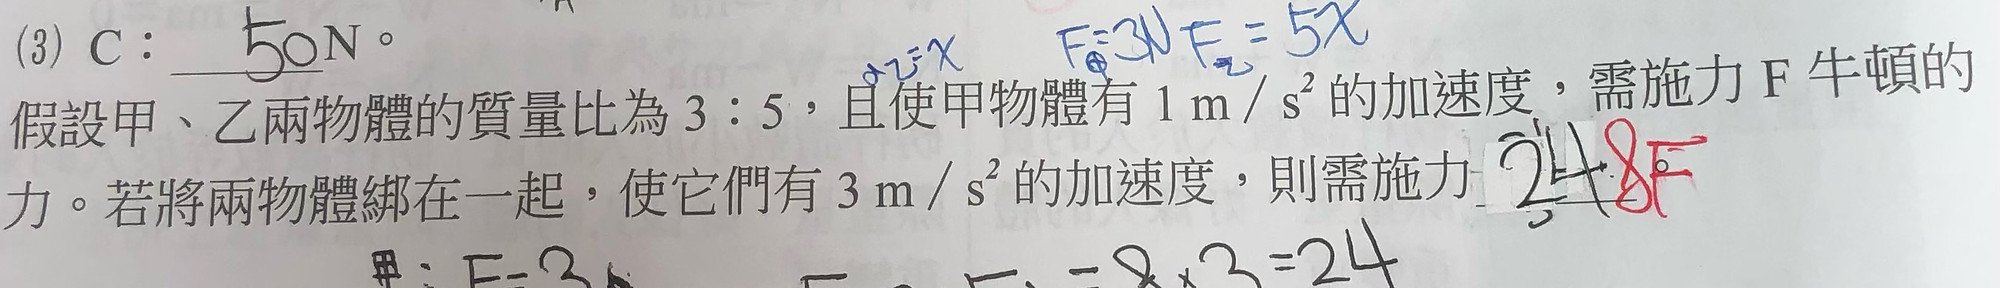 (3) C：50N。
a乙=x F甲=3N F乙=5x
假設甲、乙兩物體的質量比為 3：5，且使甲物體有 1 m／s² 的加速度，需施力 F 牛頓的
力。若將兩物體綁在一起，使它們有 3 m／s² 的加速度，則需施力 24 8F。
甲：F=3 =8×3=24